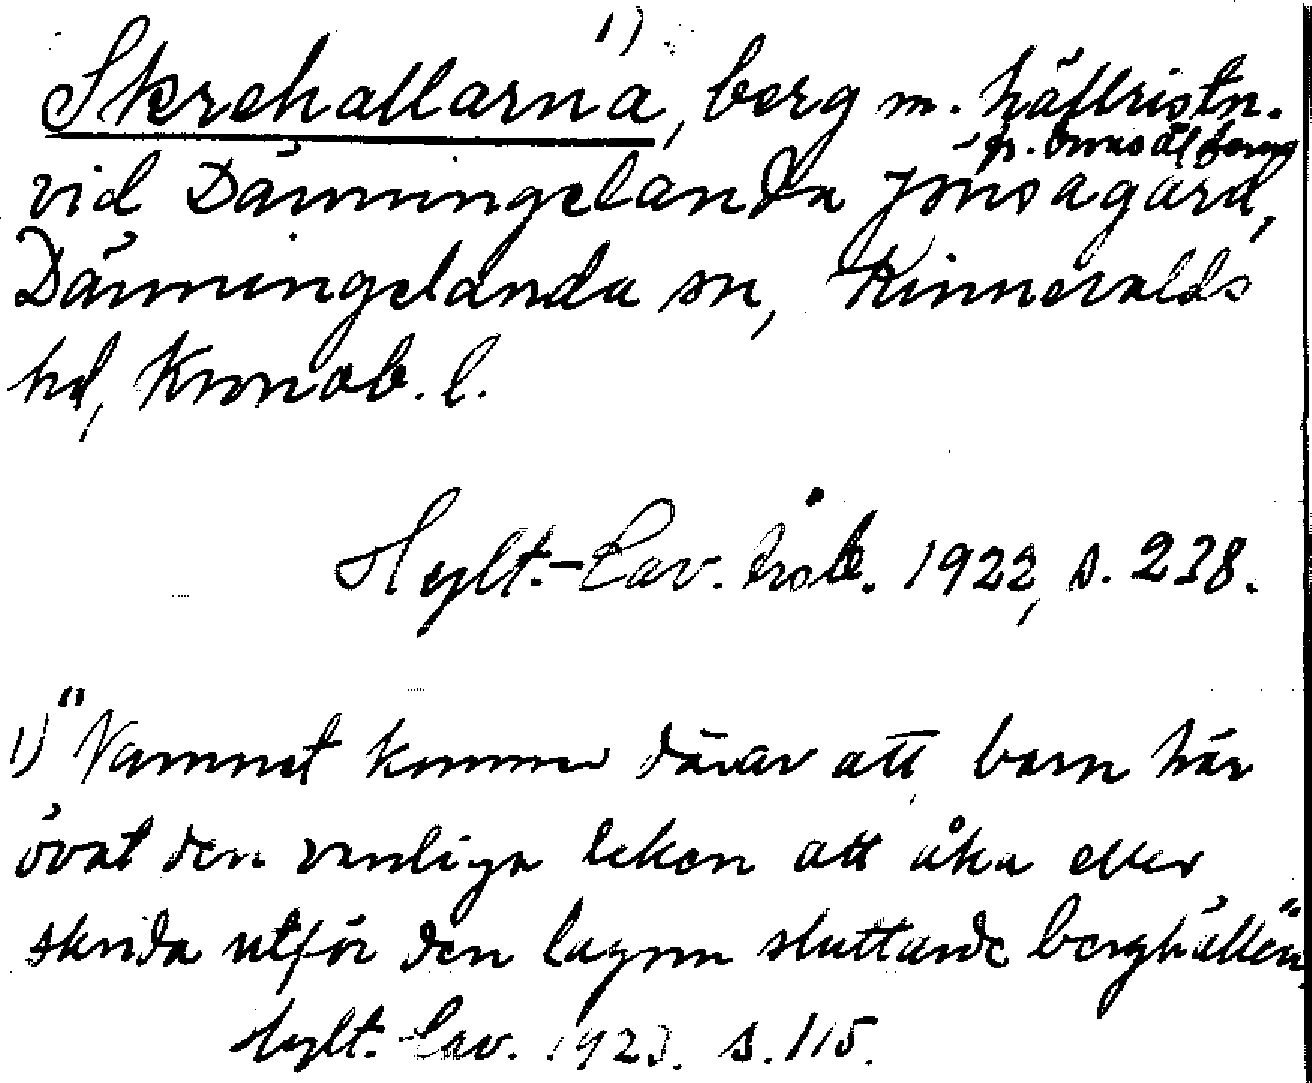 Skrehallarna¹⁾, berg m. hällristn.
fr. bronsåldern
vid Dänningelanda Jönsagård,
Dänningelanda sn, Kinnevalds
hd, Kronob. l.
Hylt.-Cav. årsb. 1922, s. 238.
1) "Namnet kommer därav att barn här
övat den vanliga leken att åka eller
skrida utför den lagom sluttande berghällen",
Hylt.-Cav. 1923. s. 115.